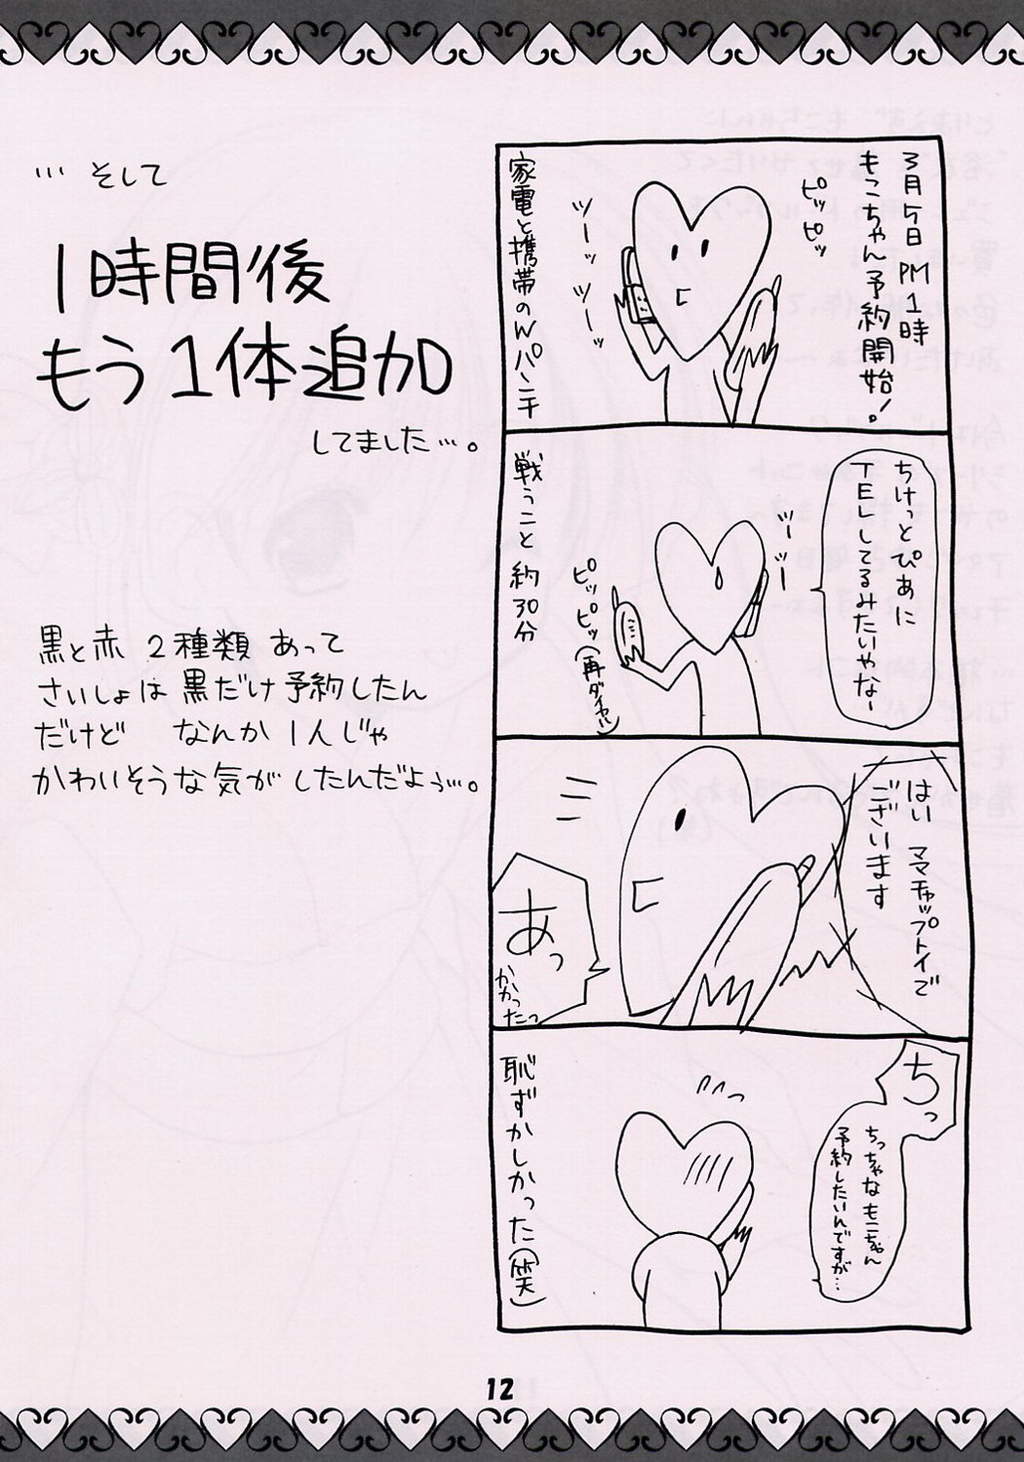 3月5日 PM1時
もこちゃん予約開始!。
ピッピッ
ツーッ
ツーッ
家電と携帯のWパンチ
ちけっとぴあに
TELしてるみたいやなー
ツーツー
ピッピッ(再ダイヤル)
戦うこと約30分
はい ママチャップトイで
ございます
あっ
かかったっ
ちっ
ちっちゃなもこちゃん
予約したいんですが…
恥ずかしかった(笑)
… そして
1時間後
もう1体追加
してました…。
黒と赤 2種類 あって
さいしょは 黒だけ予約したん
だけど なんか 1人じゃ
かわいそうな気が したんだよぅ…。
12